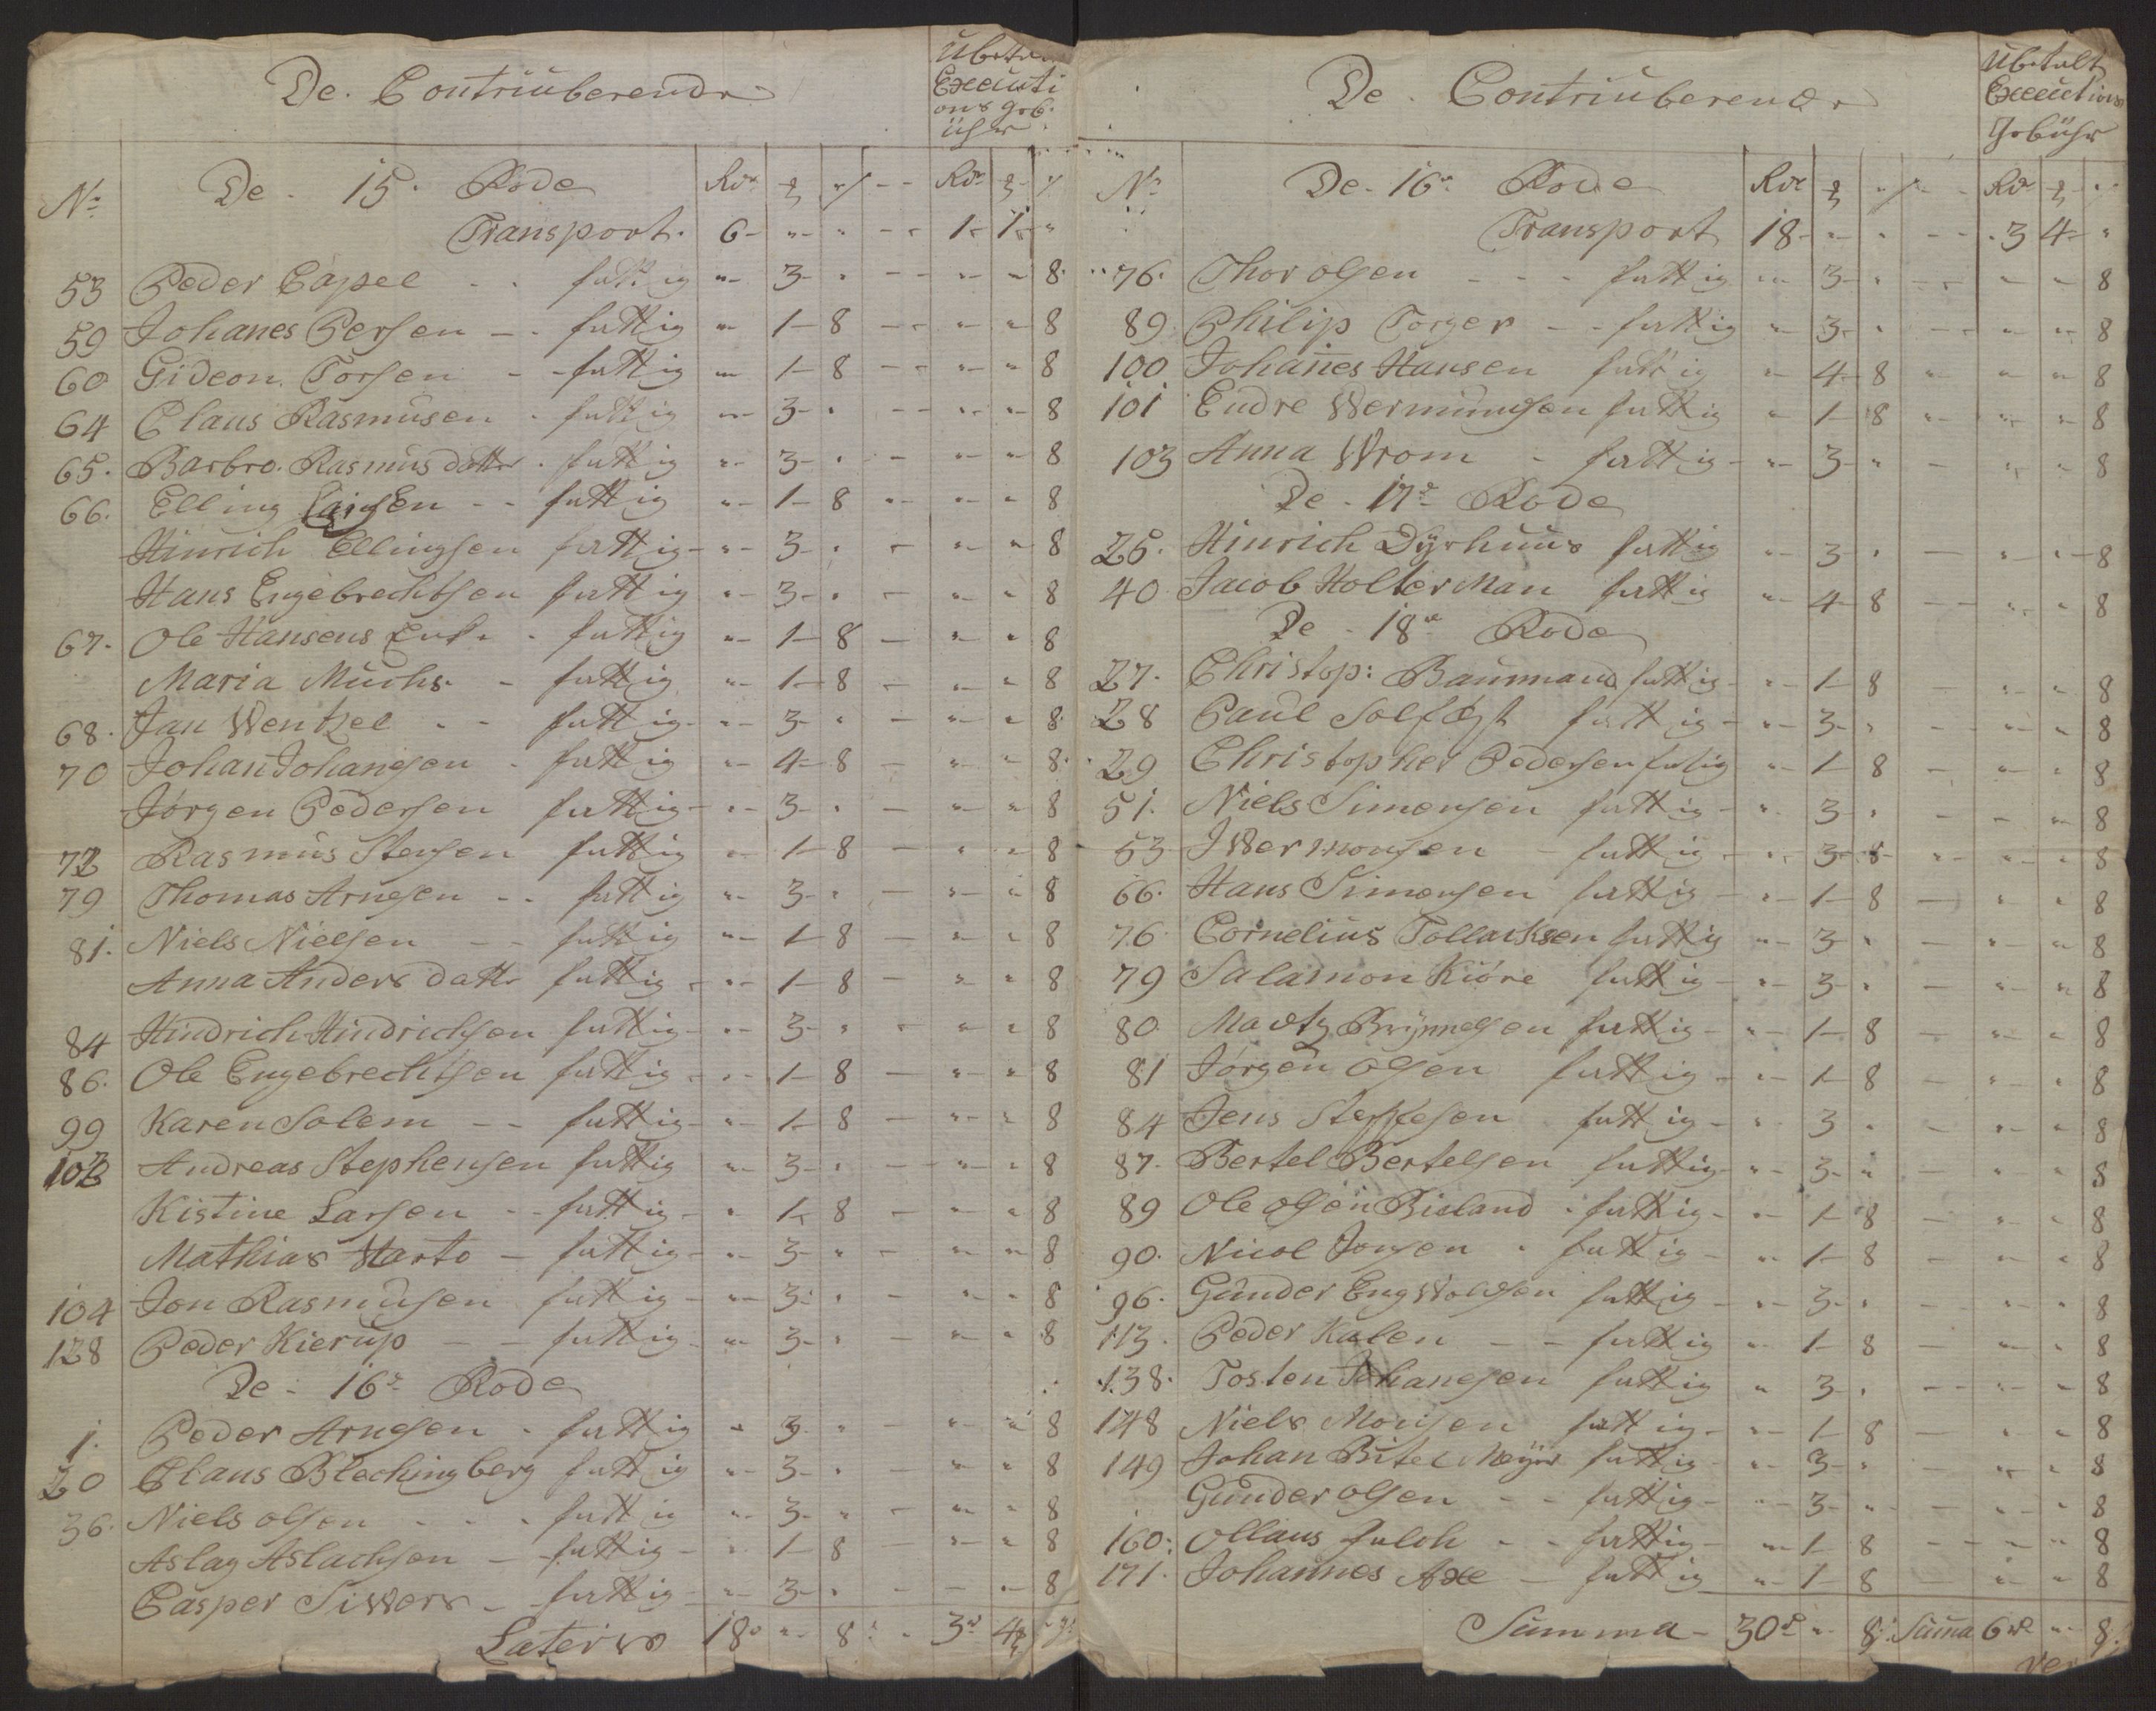 De Contriuberende
Executi
ons geb.
ühr
No De 15. Rode Rdr ꝳ ß - - Rdr ꝳ ß
Transport. 6 - " " - - 1 - 1 - "
53 Peder Capel - - fattig " 3 - " - - " " 8
59 Johanes Persen - - fattig " 1 - 8 - - " " 8
60 Gideon Torsen - - fattig " 1 - 8 - - " " 8
64 Claus Rasmusen - fattig " 3 - " - - " " 8
65. Barbro Rasmus datter . fattig " 3 - " - " " 8
66. Elling Larsen - - fattig " 1 - 8 - " " 8
Hinrich Ellingsen fattig - " 3 - " - " " 8
Hans Engebrechtsen fattig " 3 - " - " " 8
67. Ole Hansens Enke - fattig " 1 - 8 - " " 8
Maria Muchs - fattig " 1 - 8 - " " 8
68. Jan Wentzel - - fattig - " 3 - " - " " 8
70 Johan Johansen - fattig " 4 - 8 - " " 8
Jørgen Pedersen fattig - " 3 - " - " " 8
72 Rasmus Stensen fattig " 1 - 8 - " " 8
79 Thomas Arnesen - - fattig " 3 - " - " " 8
81. Niels Nielsen - - fattig " 1 - 8 - " " 8
Anna Anders datter fattig - " 1 - 8 - " " 8
84 Hindrich Hindrichsen fattig - " 3 - " - " " 8
86. Ole Engebrechtsen fattig - " 1 - 8 - " " 8
99 Karen Solem - - fattig - " 1 - 8 - " " 8
103 Andreas Stephensen fattig " 3 - " - " " 8
Kistine Larsen - - fattig - " 1 - 8 - " " 8
Mathias Harto - fattig - " 3 - " - " " 8
104 Jon Rasmusen fattig - " 3 - " - " " 8
128 Peder Kierup - - fattig - " 3 - " - " " 8
De - 16de Rode
1. Peder Arnesen - fattig " 3 - " - " " 8
20 Claus Blechingberg fattig " 3 - " - " " 8
36. Niels olsen - - - fattig " 3 - " - " " 8
Aslag Aslachsen - - fattig - " 1 - 8 - " " 8
Casper Siwers - - fattig - " 3 - " - - " 8
Lateris 18 " 8 - 3 4
De Contriuberende
Ubetalt
Executions
Gebühr
No De - 16de Rode Rdr ꝳ ß - - Rdr ꝳ "
Transport 18 - " " - - 3 4 - "
76. Thor olsen - - - fattig " 3 - " - - " " 8
89 Philip Torger - - fattig " 3 - " - - " " 8
100 Johanes Hansen fattig " 4 - 8 " " " 8
101 Endre Wermundsen fattig " 1 - 8 " " " 8
103 Anna Wrom - fattig - " 3 - " - " " 8
De - 17de Rode
26. Hinrich Dyrhuus fattig " 3 " - " " 8
40 Jacob Holterman fattig " 4 - 8 - - " " 8
De - 18de Rode
27. Christop: Baumand fattig - " 1 - 8 - " " 8
28 Paul Solfæst fattig - " 3 - " - " " 8
29 Christopher Pedersen fattig " 1 - 8 - " " 8
51. Niels Simonsen fattig - " 3 " - - " 8
53 Iwer monsen - fattig - " 3 - 8 - " " " 8
66. Hans Simonsen fattig - " 1 - 8 - " " 8
76 Cornelius Tollacksen fattig " 3 " - " " 8
79 Salamon Kiöre fattig - " 3 - " - " " 8
80. Mavtz Brynnelsen fattig - " 1 - 8 - " " 8
81 Jörgen olsen fattig - " 1 - 8 - " " 8
84 Jens Steffesen fattig - " 3 " - " " 8
87. Bertel Bertelsen fattig - " 3 - " - " " 8
89 Ole olsen Bieland - fattig - " 1 - 8 - " " 8
90. Nicol Jonsen - fattig - " 1 - 8 - " " 8
96. Gunder Engwoldsen fattig - " 3 - " - " " 8
113. Peder Kalen - - fattig " 1 - 8 - " " 8
138. Tosten Johanesen fattig " 3 - " - - " " 8
148 Niels Monsen fattig - " 1 - 8 - " " 8
149 Johan Bitel Meyer fattig - " 3 - " " " 8
Gunder olsen - - fattig - " 3 - " - " " 8
160: Ollaus Falch - - fattig - " 1 - 8 - - " " 8
171. Johannes Axe - fattig " 1 - 8 - " " 8
Summa - 30 " 8 Suma 6 " 8.